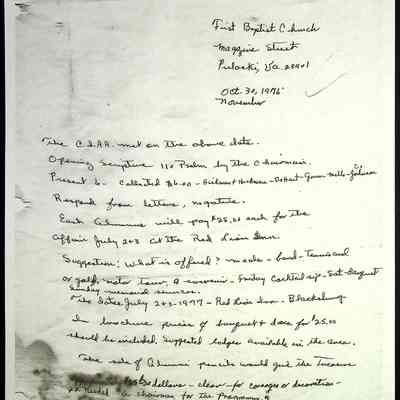 First Baptist Church
Magazine Street
Pulaski, Va. 24301
Oct. 30, 1976
November
The C.I.A.A. met on the above date.
Opening Scripture 110 Psalm by the Chairman.
Present 6 - Collected $6.00 - Holmes + Holmes - DeHart - Green - Mills - Johnson
Respond from letters, negative.
Each Alumnus will pay $25.00 each for the
affair July 2+3 at the Red Lion Inn
Suggestion: What is offered? meals - band - Tennis and
or golf, motor tour, a souvenir - Friday Cocktail sip - Sat. Banquet
Sunday memorial services.
The Dates July 2+3-1977 - Red Lion Inn - Blacksburg
In brochure price of banquet + dance for $25.00
should be included. Suggested lodges available in the area.
The sale of Alumni pencils would give the Treasure
dollars - clear - for corsages or decoration -
chairman for the Programme.